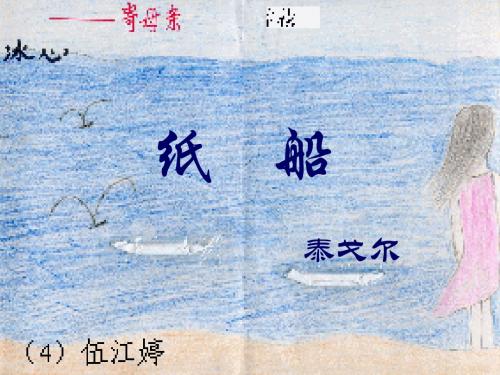 ——寄母亲
冰心
纸 船
泰戈尔
(4) 伍江婷